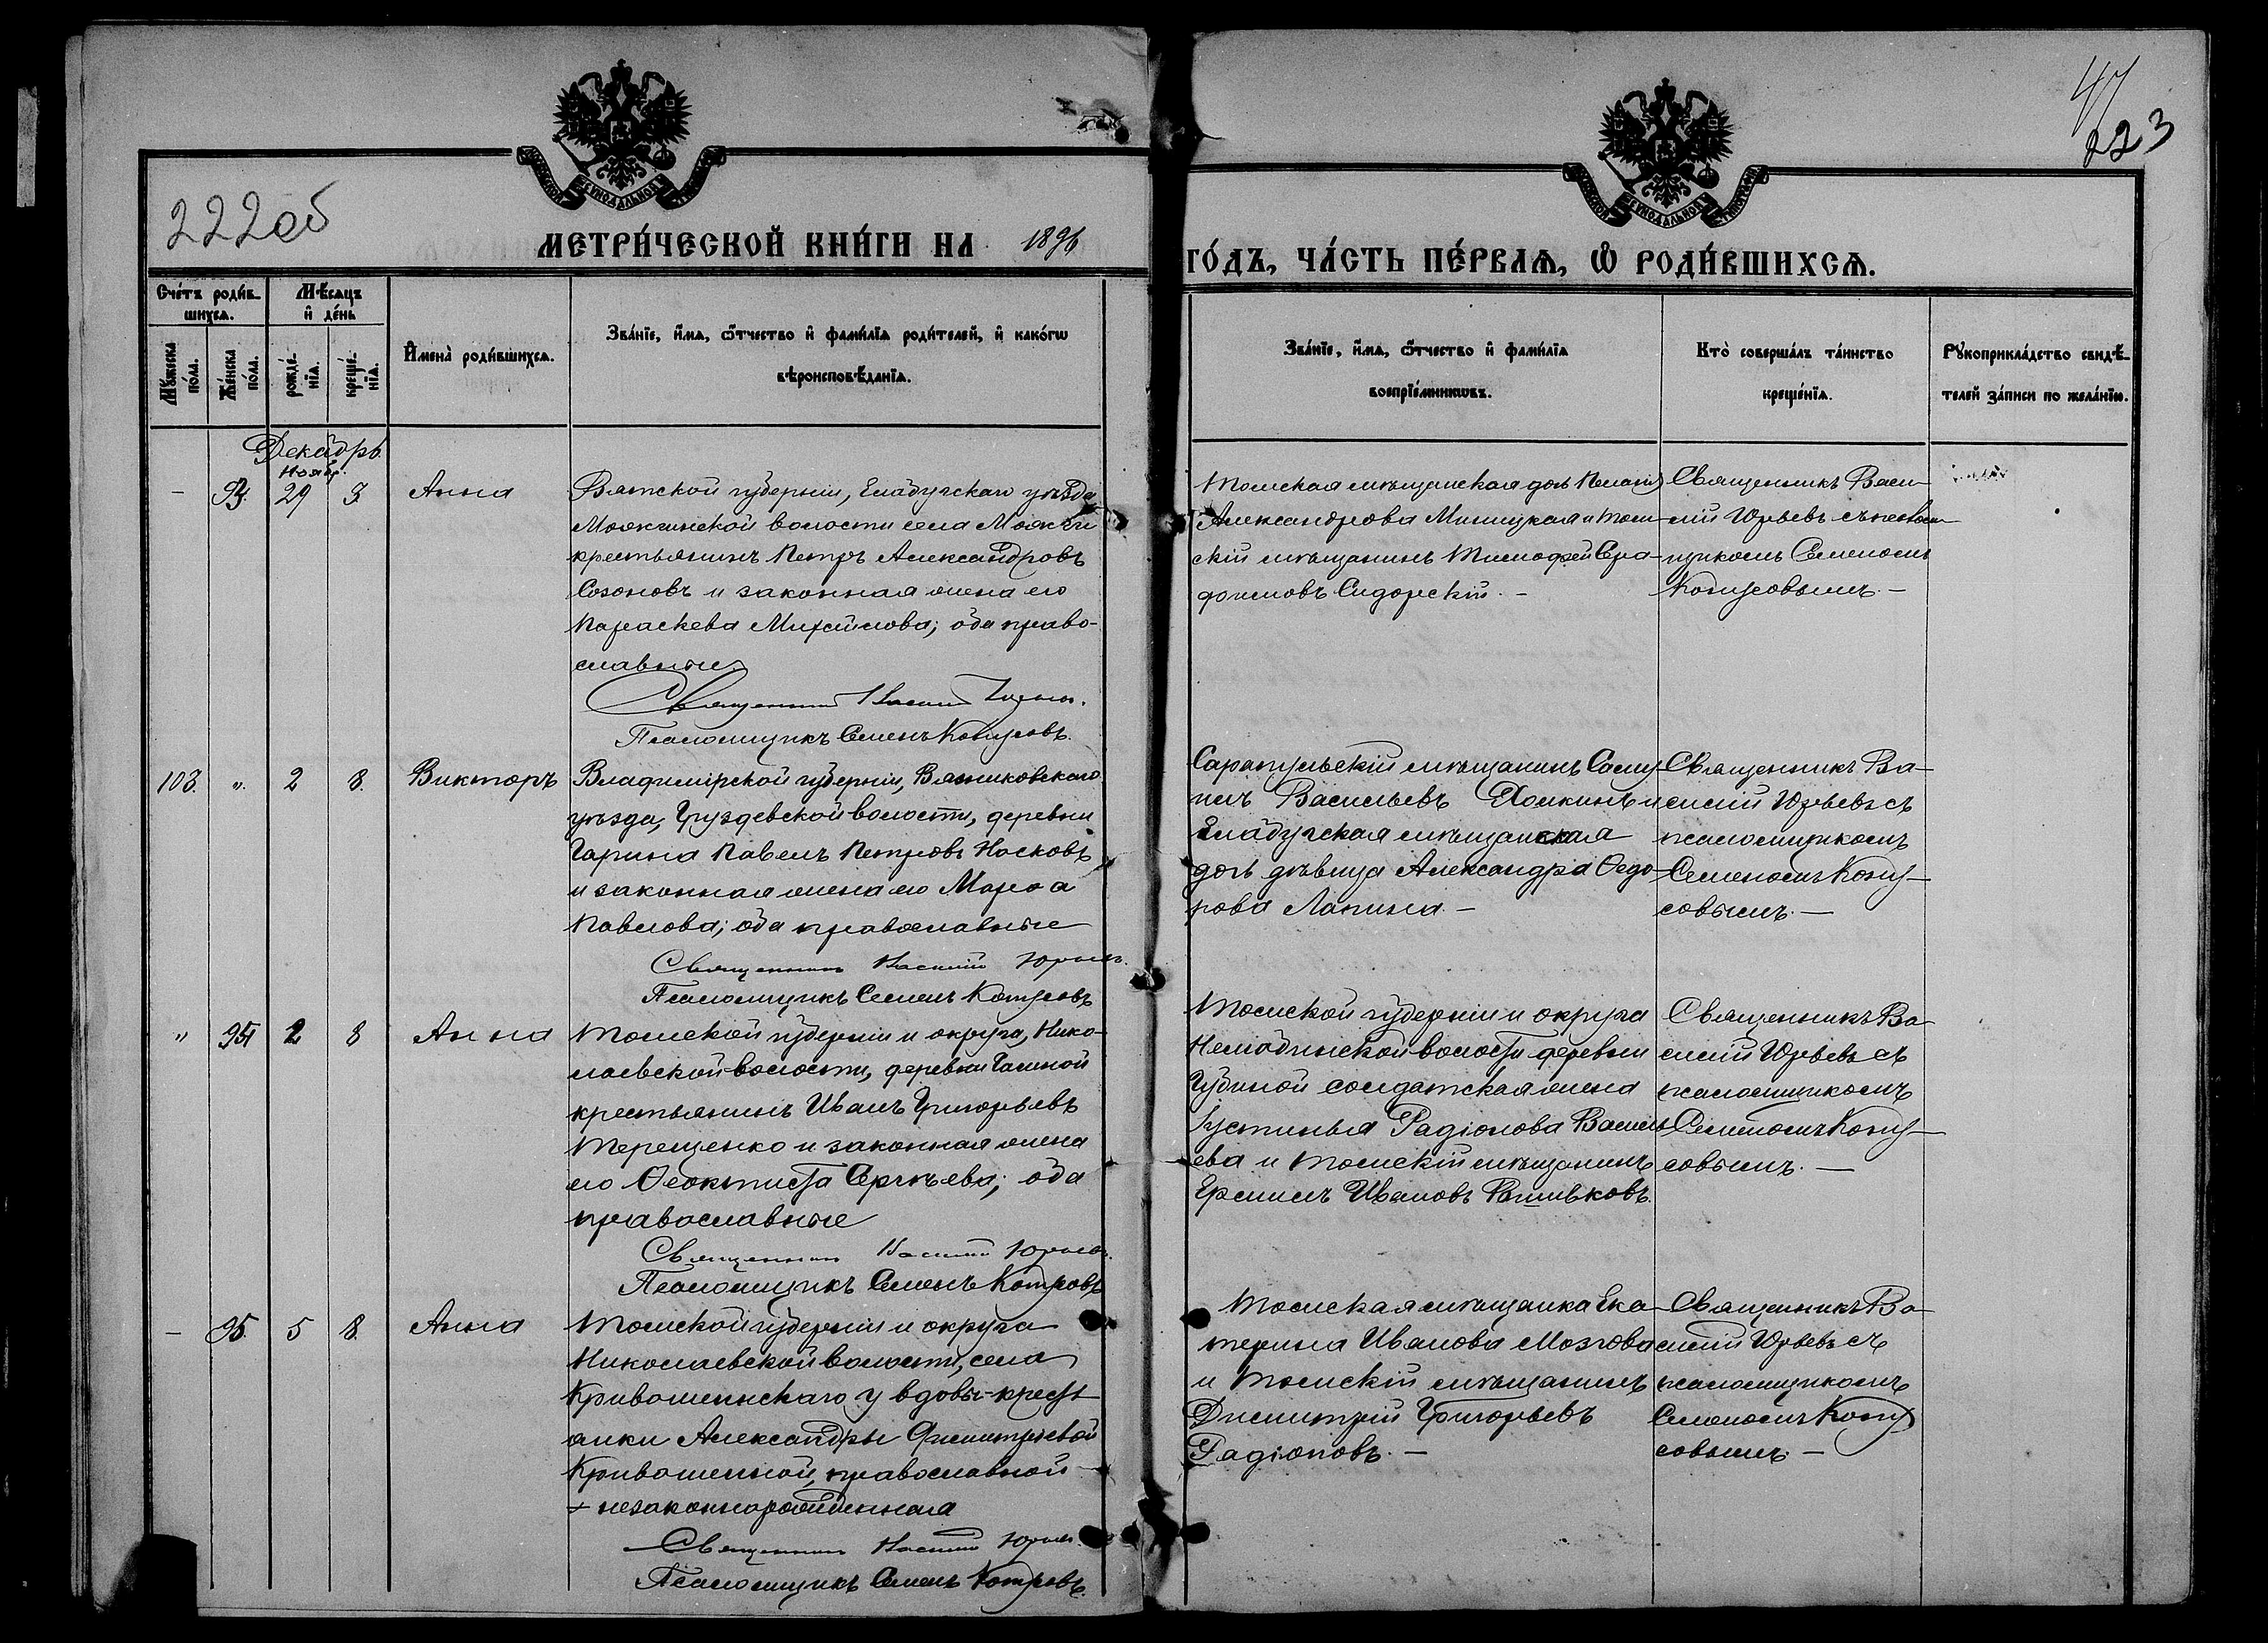 47
223
222об
МЕТРИ́ЧЕСКОЙ КНИ́ГИ НА 1896
ГО́ДЪ, ЧА́СТЬ ПЕ́РВАѦ, Ѡ РОДИ́ВШИХСѦ.
Сче́тъ роди́в-
шихсѧ.
Мѣ́сѧцъ
и҆ де́нь
Мꙋ́жеска
по́ла.
Же́нска
по́ла.
рожде́-
нїѧ.
креще́-
нїѧ.
И҆мена̀ роди́вшихсѧ.
Зва́нїе, и҆́мѧ, ѻ҆́тчество и҆ фамѝлїѧ роди́телей, и҆ како́гѡ
вѣроисповѣ́данїѧ.
Зва́нїе, и҆́мѧ, ѻ҆́тчество и҆ фамѝлїѧ
воспрїе́мникѡвъ.
Кто̀ соверша́лъ та́инство
креще́нїѧ.
Рꙋкоприкла́дство свидѣ́-
телей за́писи по жела́нїю.
Декабрь.
Ноябр.
- 93. 29 3. Анна
Вятской губернiи, Елабугскаго уѣзда
Можгинской волости села Можги
крестьянинъ Петръ Александровъ
Созоновъ и законная жена его
Параскева Михайлова; оба право-
славные.
Священникъ Василiй Юрьевъ.
Псаломщикъ Семенъ Кожусовъ.
Томская мѣщанская дочь Пелагiя
Александрова Миницкая и Том-
скiй мѣщанинъ Тимофей Сра-
фимовъ Сидорскiй. -
Священникъ Васи-
лiй Юрьевъ съ псалом-
щикомъ Семеномъ
Кожусовымъ. -
103. ". 2 8. Викторъ
Владимiрской губернiи, Вязниковскаго
уѣзда, Груздевской волости, деревни
Гарина Павелъ Петровъ Носковъ
и законная жена его Марѳа
Павлова; оба православные
Священникъ Василiй Юрьевъ.
Псаломщикъ Семенъ Кожусовъ
Сарапульскiй мѣщанинъ Саму-
илъ Васильевъ Хомкинъ и
Елабугская мѣщанская
дочь дѣвица Александра Ѳедо-
рова Лапина. -
Священникъ Ва-
силiй Юрьевъ съ
псаломщикомъ
Семеномъ Кожу-
совымъ. -
" 94 2 8 Анна
Томской губернiи и округа, Нико-
лаевской волости, деревни Галиной
крестьянинъ Иванъ Григорьевъ
Терещенко и законная жена
его Ѳеоктиста Сергѣева; оба
православные
Священникъ Василiй Юрьевъ.
Псаломщикъ Семенъ Кожусовъ
Томской губернiи и округа
Нелюбинской волости деревни
Губиной солдатская жена
Iустинья Радiонова Василь-
ева и Томскiй мѣщанинъ
Ермилъ Ивановъ Рошивковъ.
Священникъ Ва-
силiй Юрьевъ съ
псаломщикомъ
Семеномъ Кожу-
совымъ. -
- 95. 5 8. Анна
Томской губернiи и округа
Николаевской волости, села
Кривошеинскаго у вдовы-кресть
янки Александры Дмитрiевой
Кривошеиной, православной
+ незаконнорожденная
Священникъ Василiй Юрьевъ.
Псаломщикъ Семенъ Кожусовъ.
Томская мѣщанка Ека-
терина Иванова Мозгова
и Томскiй мѣщанинъ
Дмитрiй Григорьевъ
Радiоновъ. -
Священникъ Ва-
силiй Юрьевъ съ
псаломщикомъ
Семеномъ Кожу
совымъ. -